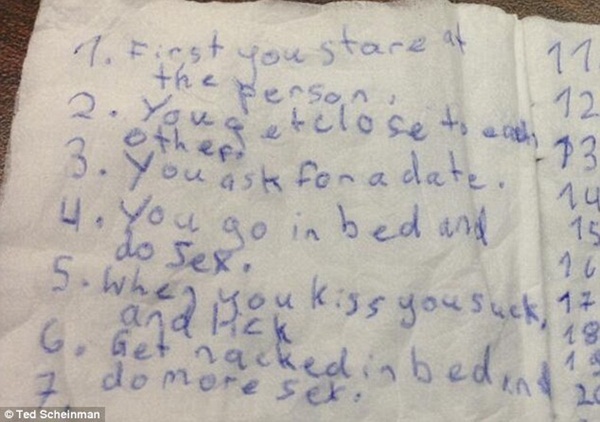 1. First you stare at
the person.
2. You get close to each
other.
3. You ask for a date.
4. You go in bed and
do sex.
5. When you kiss you suck
and lick
6. Get nacked in bed and
do more sex.
7.
11
12
13
14
15
16
17
18
19
20
© Ted Scheinman